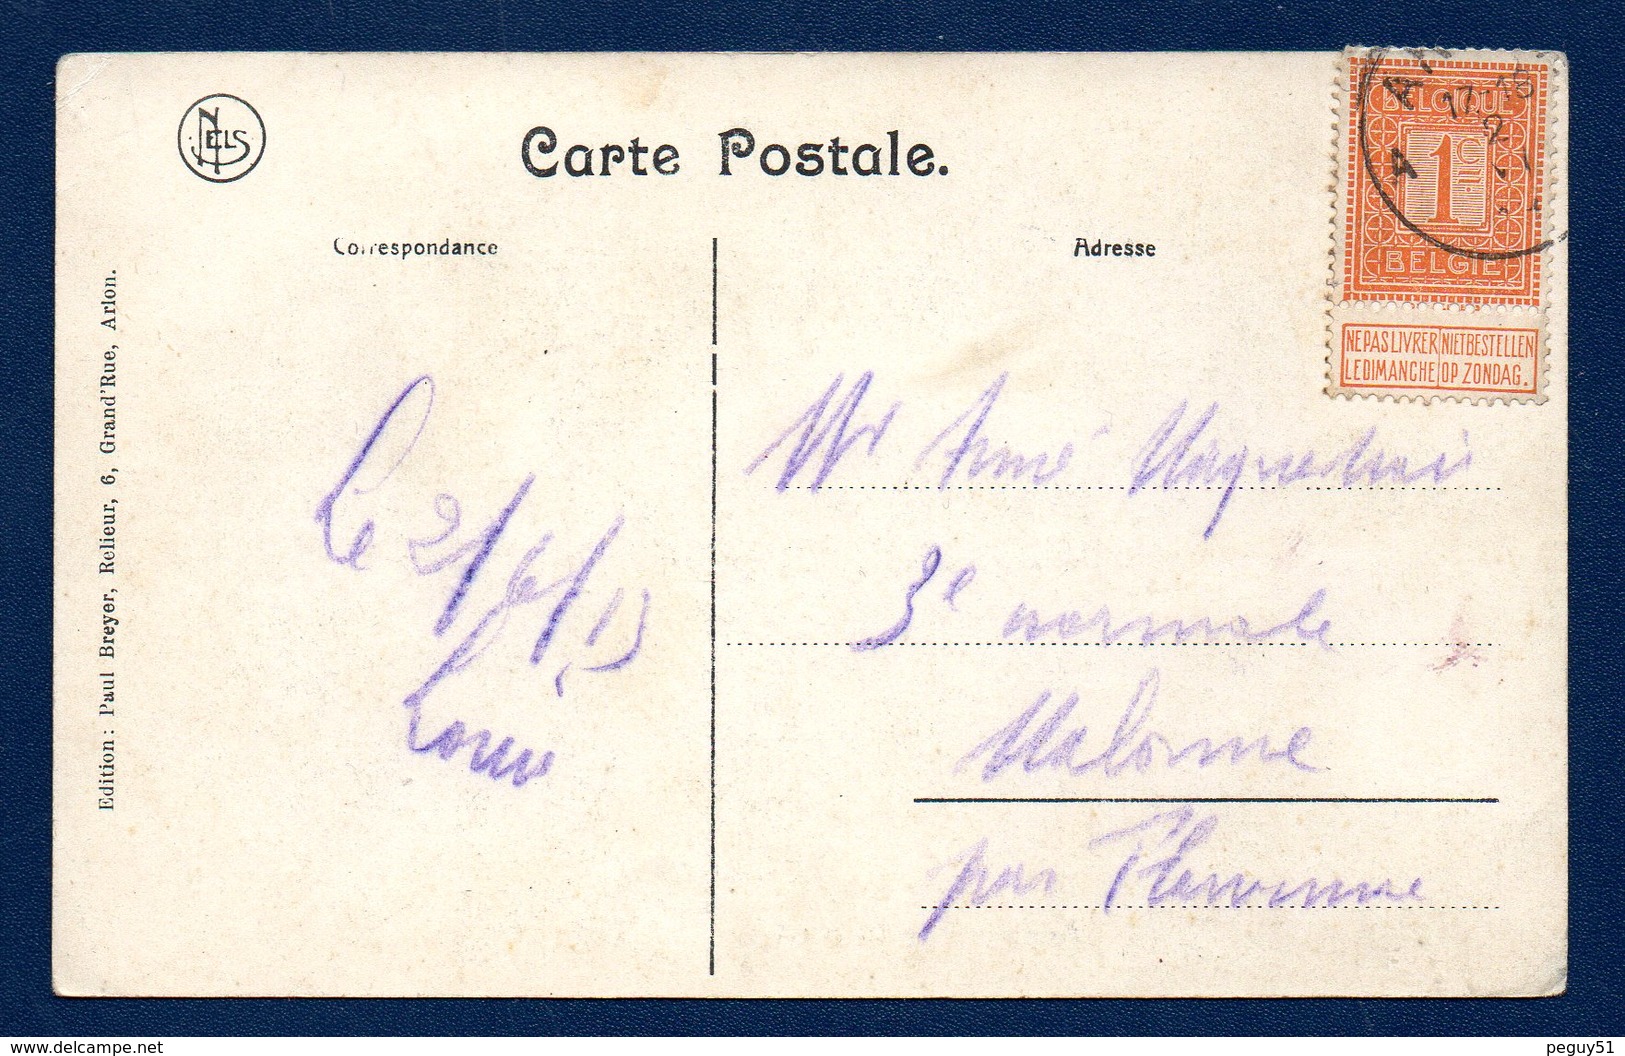 NELS
Carte Postale.
Correspondance
Adresse
BELGIQUE
1c
BELGIË
NE PAS LIVRER LE DIMANCHE
NIET BESTELLEN OP ZONDAG.
Edition: Paul Breyer, Relieur, 6, Grand'Rue, Arlon.
Le 21/6/13
Mr Aimé
3e normale
Malonne
par Flawinne
www.delcampe.net
peguy51